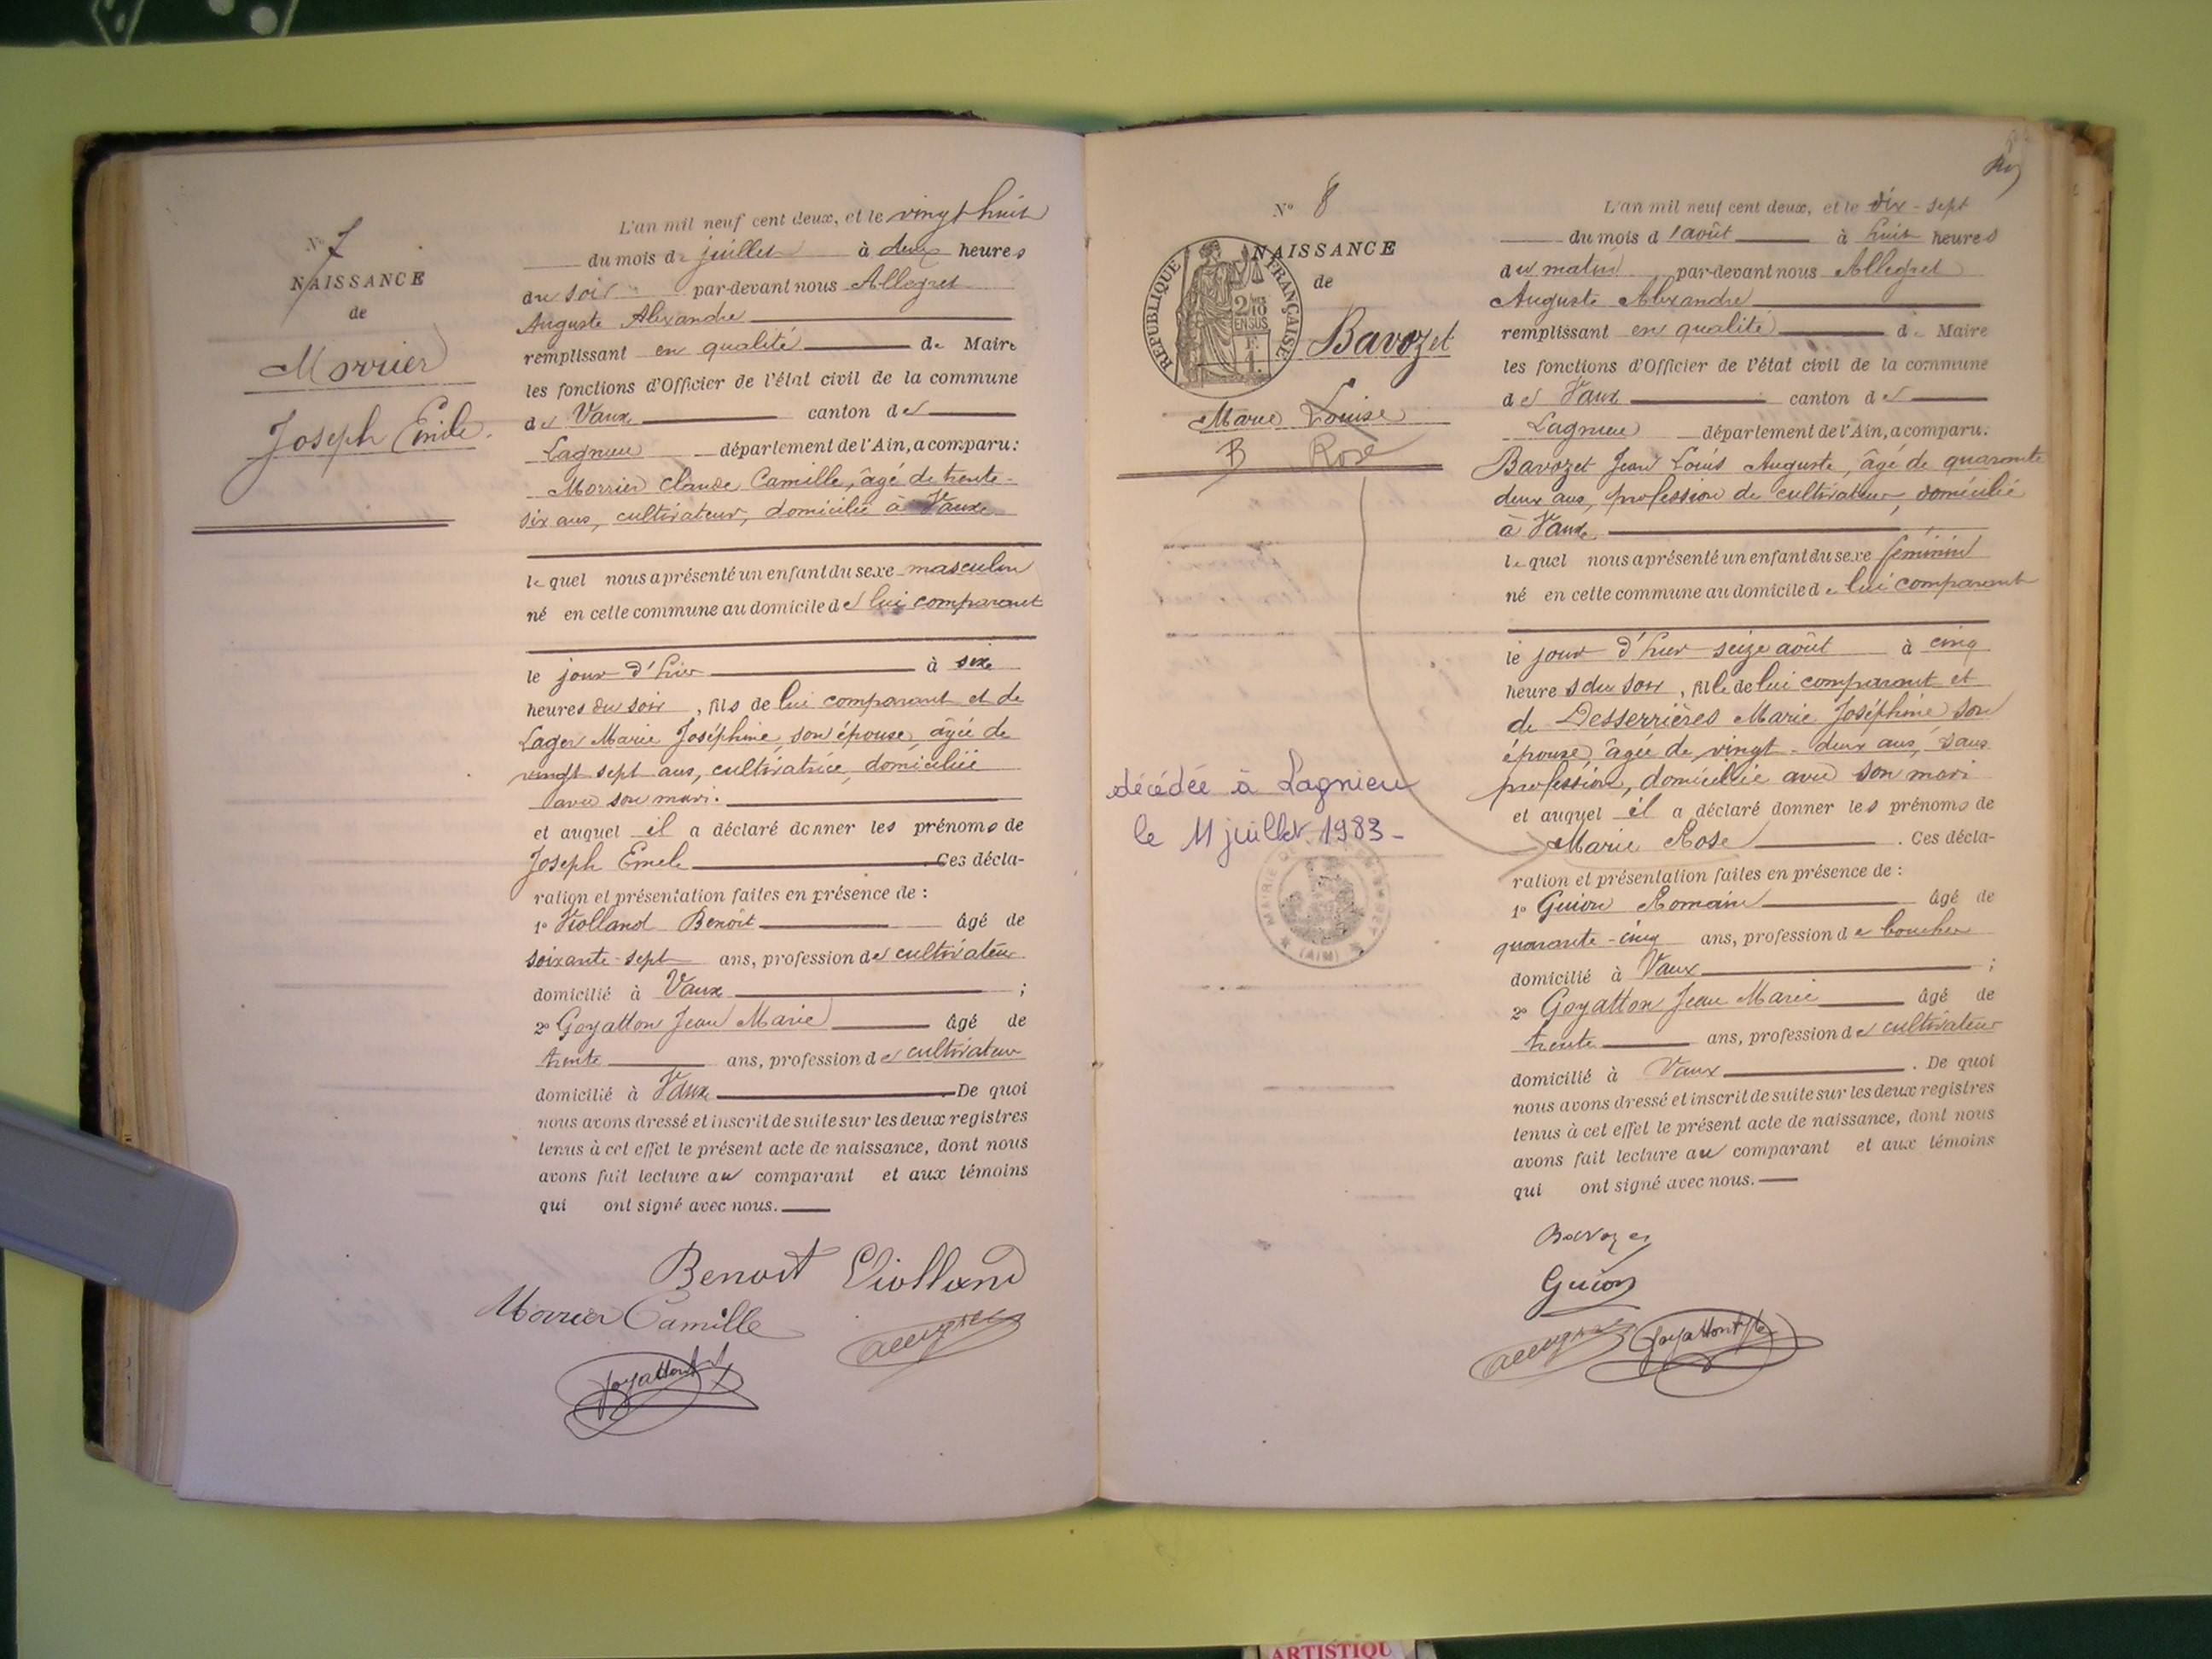 N° 7
NAISSANCE
de
Morrier
Joseph Emile.
L'an mil neuf cent deux, et le vingt huit
du mois de juillet à deux heures
du soir par-devant nous Allegret
Auguste Alexandre
remplissant en qualité de Maire
les fonctions d'Officier de l'état civil de la commune
de Vaux canton de
Lagnieu département de l'Ain, a comparu:
Morrier Claude Camille, âgé de trente-
six ans, cultivateur, domicilié à Vaux
lequel nous a présenté un enfant du sexe masculin
né en cette commune au domicile de lui comparant
le jour d'hier à six
heures du soir, fils de lui comparant et de
Lager Marie Joséphine, son épouse, âgée de
vingt sept ans, cultivatrice, domiciliée
avec son mari.
et auquel il a déclaré donner les prénoms de
Joseph Emile Ces décla-
ration et présentation faites en présence de :
1° Violland Benoît âgé de
soixante-sept ans, profession de cultivateur
domicilié à Vaux ;
2° Goyatton Jean Marie âgé de
trente ans, profession de cultivateur
domicilié à Vaux De quoi
nous avons dressé et inscrit de suite sur les deux registres
tenus à cet effet le présent acte de naissance, dont nous
avons fait lecture au comparant et aux témoins
qui ont signé avec nous.
Benoit Violland
Morrier Camille
Allegret
Goyatton
N° 8
NAISSANCE
de
RÉPUBLIQUE FRANÇAISE
2/10
EN SUS
F.
1.
Bavozet
Marie Louise
B Rose
décédée à Lagnieu
le 11 juillet 1983-
MAIRIE
(AIN)
L'an mil neuf cent deux, et le dix-sept
du mois d'août à huit heures
du matin par-devant nous Allegret
Auguste Alexandre
remplissant en qualité de Maire
les fonctions d'Officier de l'état civil de la commune
de Vaux canton de
Lagnieu département de l'Ain, a comparu:
Bavozet Jean Louis Auguste, âgé de quarante
deux ans, profession de cultivateur, domicilié
à Vaux
lequel nous a présenté un enfant du sexe féminin
né en cette commune au domicile de lui comparant
le jour d'hier seize août à cinq
heures du soir, fille de lui comparant et
de Desserrières Marie Joséphine son
épouse, âgée de vingt-deux ans, sans
profession, domiciliée avec son mari
et auquel il a déclaré donner les prénoms de
Marie Rose . Ces décla-
ration et présentation faites en présence de :
1° Guion Romain âgé de
quarante-cinq ans, profession de boucher
domicilié à Vaux ;
2° Goyatton Jean Marie âgé de
trente ans, profession de cultivateur
domicilié à Vaux . De quoi
nous avons dressé et inscrit de suite sur les deux registres
tenus à cet effet le présent acte de naissance, dont nous
avons fait lecture au comparant et aux témoins
qui ont signé avec nous.
Bavozet
Guion
Allegret Goyatton
ARTISTIQU